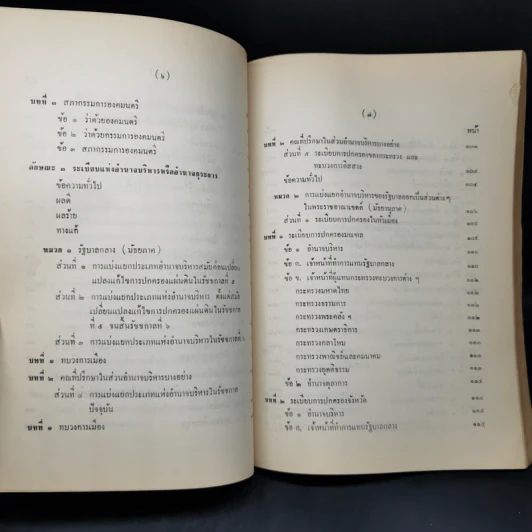 (๖)
บทที่ ๓ สภากรรมการองคมนตรี
ข้อ ๑ ว่าด้วยองคมนตรี
ข้อ ๒ ว่าด้วยกรรมการองคมนตรี
ข้อ ๓ สภากรรมการองคมนตรี
ลักษณะ ๓ ระเบียบแห่งอำนาจบริหารหรืออำนาจธุระการ
ข้อความทั่วไป
ผลดี
ผลร้าย
ทางแก้
หมวด ๑ รัฐบาลกลาง (มัธยภาค)
ส่วนที่ ๑ การแบ่งแยกประเภทอำนาจบริหารสมัยก่อนเปลี่ยน
แปลงแก้ไขการปกครองแผ่นดินในรัชกาลที่ ๕
ส่วนที่ ๒ การแบ่งแยกประเภทแห่งอำนาจบริหาร ตั้งแต่ได้
เปลี่ยนแปลงแก้ไขการปกครองแผ่นดินในรัชกาล
ที่ ๕ จนสิ้นรัชกาลที่ ๖
ส่วนที่ ๓ การแบ่งแยกประเภทแห่งอำนาจบริหารในรัชกาล
บทที่ ๑ ทบวงการเมือง
บทที่ ๒ คณที่ปรึกษาในส่วนอำนาจบริหารบางอย่าง
ส่วนที่ ๔ การแบ่งแยกประเภทแห่งอำนาจบริหารในรัชกาล
ปัจจุบัน
บทที่ ๑ ทบวงการเมือง
(๗)
หน้า
บทที่ ๒ คณที่ปรึกษาในส่วนอำนาจบริหารบางอย่าง
ส่วนที่ ๕ ระเบียบการปกครองของกระทรวง และ
ทะบวงการอิสสระ
ข้อความทั่วไป
หมวด ๒ การแบ่งแยกอำนาจบริหารของรัฐบาลออกเป็นส่วนต่างๆ
ในพระราชอาณาเขตต์ (มัธยานุภาค)
ส่วนที่ ๑ ระเบียบการปกครองในหัวเมือง
บทที่ ๑ ระเบียบการปกครองมณฑล
ข้อ ๑ อำนาจบริหาร
ข้อ ก. เจ้าหน้าที่ทำการแทนรัฐบาลกลาง
ข้อ ข. เจ้าหน้าที่ผู้แทนกระทรวงทบวงการต่าง ๆ
กระทรวงมหาดไทย
กระทรวงธรรมการ
กระทรวงพระคลัง ฯ
กระทรวงเกษตราธิการ
กระทรวงกลาโหม
กระทรวงพาณิชย์และคมนาคม
กระทรวงยุตติธรรม
ข้อ ๒ อำนาจตุลาการ
บทที่ ๒ ระเบียบการปกครองจังหวัด
ข้อ ๑ อำนาจบริหาร
ข้อ ก. เจ้าหน้าที่ทำการแทนรัฐบาลกลาง